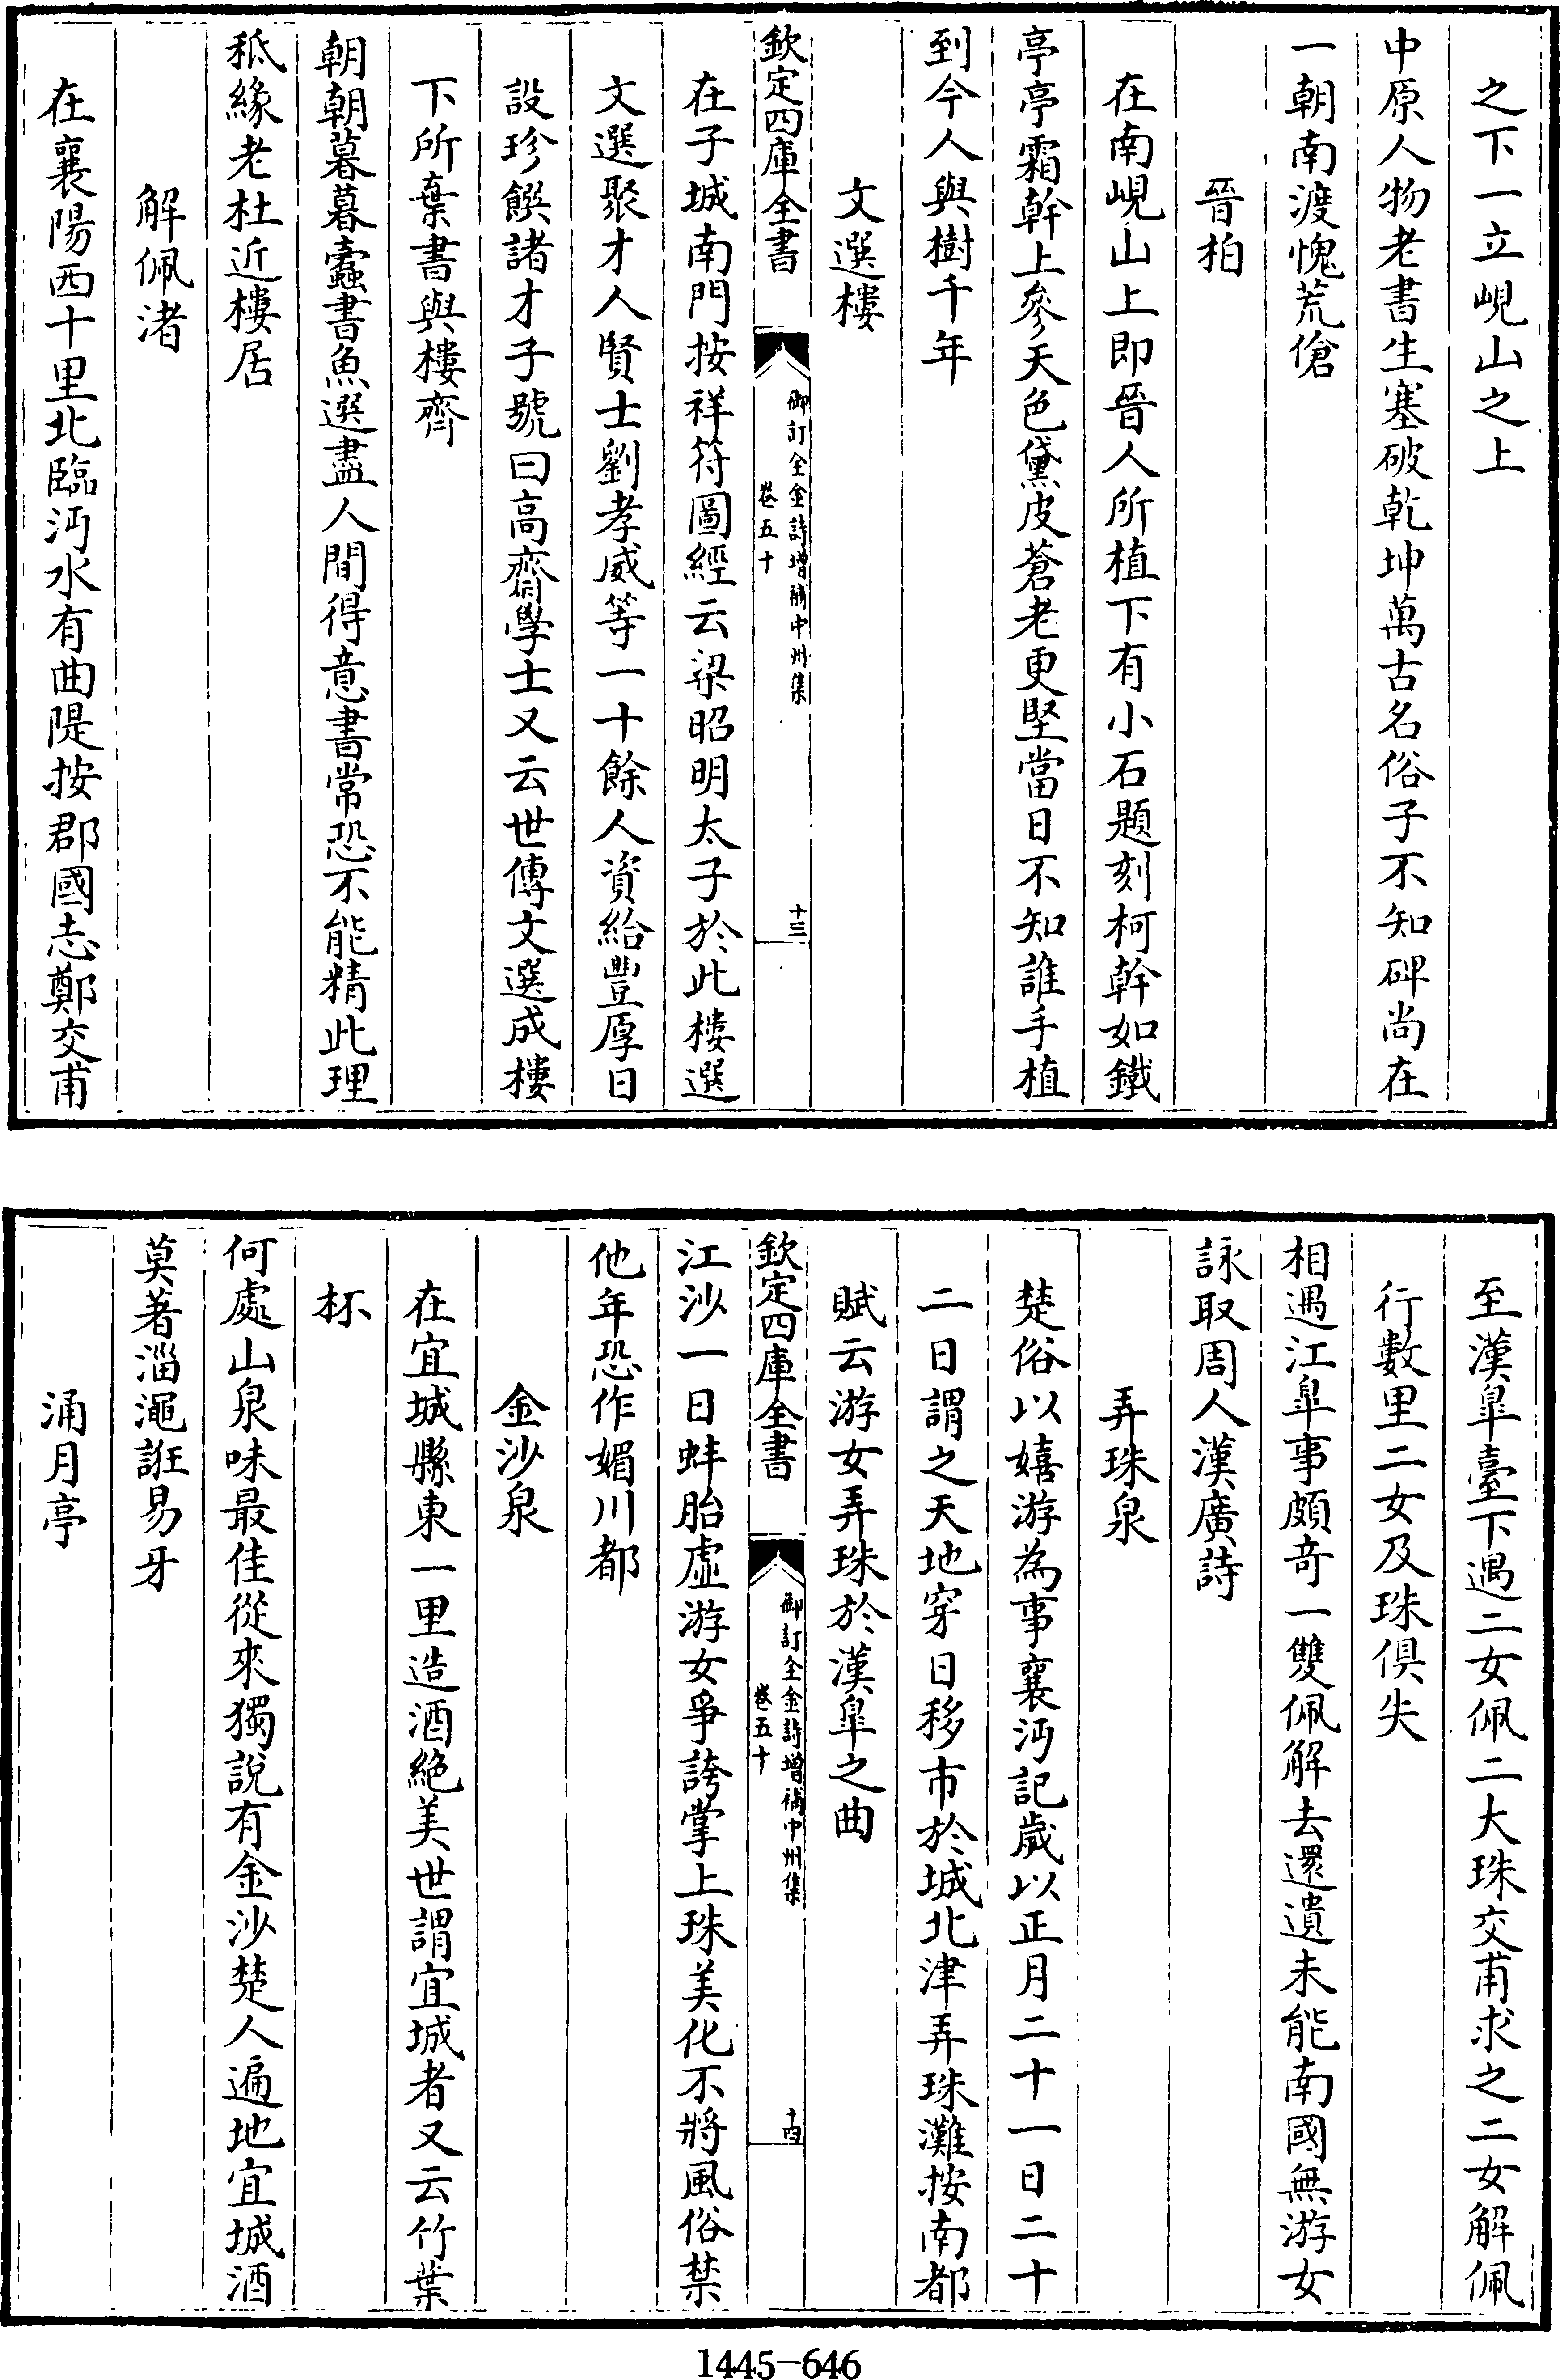 之下一立峴山之上
中原人物老書生塞破乾坤萬古名俗子不知碑尚在
一朝南渡愧荒傖
晉柏
在南峴山上即晉人所植下有小石題刻柯幹如鐵
亭亭霜幹上參天色黛皮蒼老更堅當日不知誰手植
到今人與樹千年
文選樓
欽定四庫全書
御訂全金詩增補中州集
卷五十
十三
在子城南門按祥符圖經云梁昭明太子於此樓選
文選聚才人賢士劉孝威等一十餘人資給豐厚日
設珍饌諸才子號曰高齋學士又云世傳文選成樓
下所棄書與樓齊
朝朝暮暮蠹書魚選盡人間得意書常恐不能精此理
秪緣老杜近樓居
解佩渚
在襄陽西十里北臨沔水有曲隄按郡國志鄭交甫
至漢臯臺下遇二女佩二大珠交甫求之二女解佩
行數里二女及珠俱失
相遇江臯事頗竒一雙佩解去還遺未能南國無游女
詠取周人漢廣詩
弄珠泉
楚俗以嬉游為事襄沔記歲以正月二十一日二十
二日謂之天地穿日移市於城北津弄珠灘按南都
賦云游女弄珠於漢臯之曲
欽定四庫全書
御訂全金詩增補中州集
卷五十
十四
江沙一日蚌胎虛游女爭誇掌上珠美化不將風俗禁
他年恐作媚川都
金沙泉
在宜城縣東一里造酒絶美世謂宜城者又云竹葉
杯
何處山泉味最佳從來獨說有金沙楚人遍地宜城酒
莫著淄澠誑易牙
涌月亭
1445-646